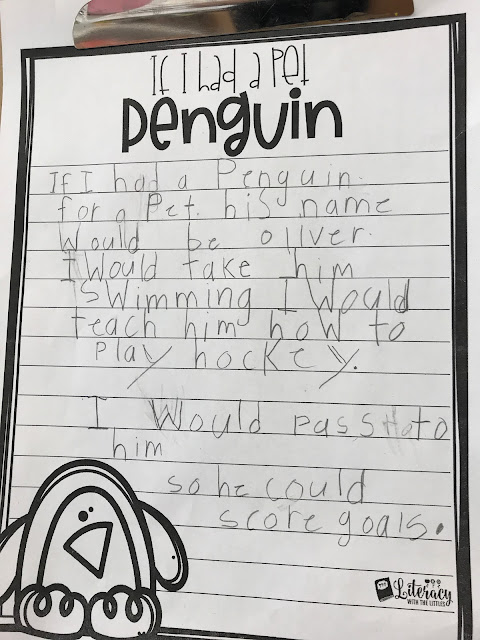 If I had a Pet
Penguin
If I had a Penguin.
for a Pet. his name
Would be oliver.
I Would take him
swimming I Would
teach him how to
play hockey.
I Would pass to
him
so he could
score goals.
Literacy
WITH THE LITTLES